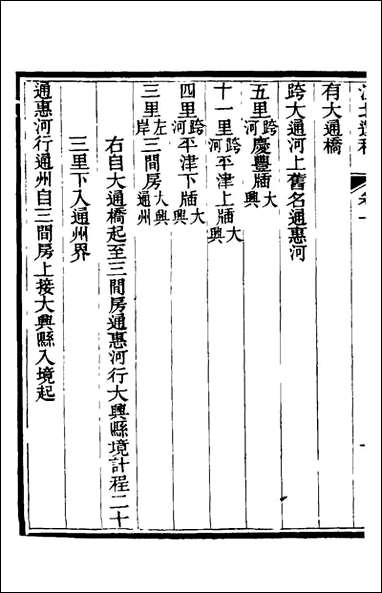 有大通橋
跨大通河上舊名通惠河
五里跨河慶豐牐大興
十一里跨河平津上牐大興
四里跨河平津下牐大興
三里左岸三間房大興通州
右自大通橋起至三間房通惠河行大興縣境計程二十
三里下入通州界
通惠河行通州自三間房上接大興縣入境起